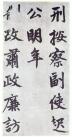 刑按察副使改
公明年
刺政肅政廉訪